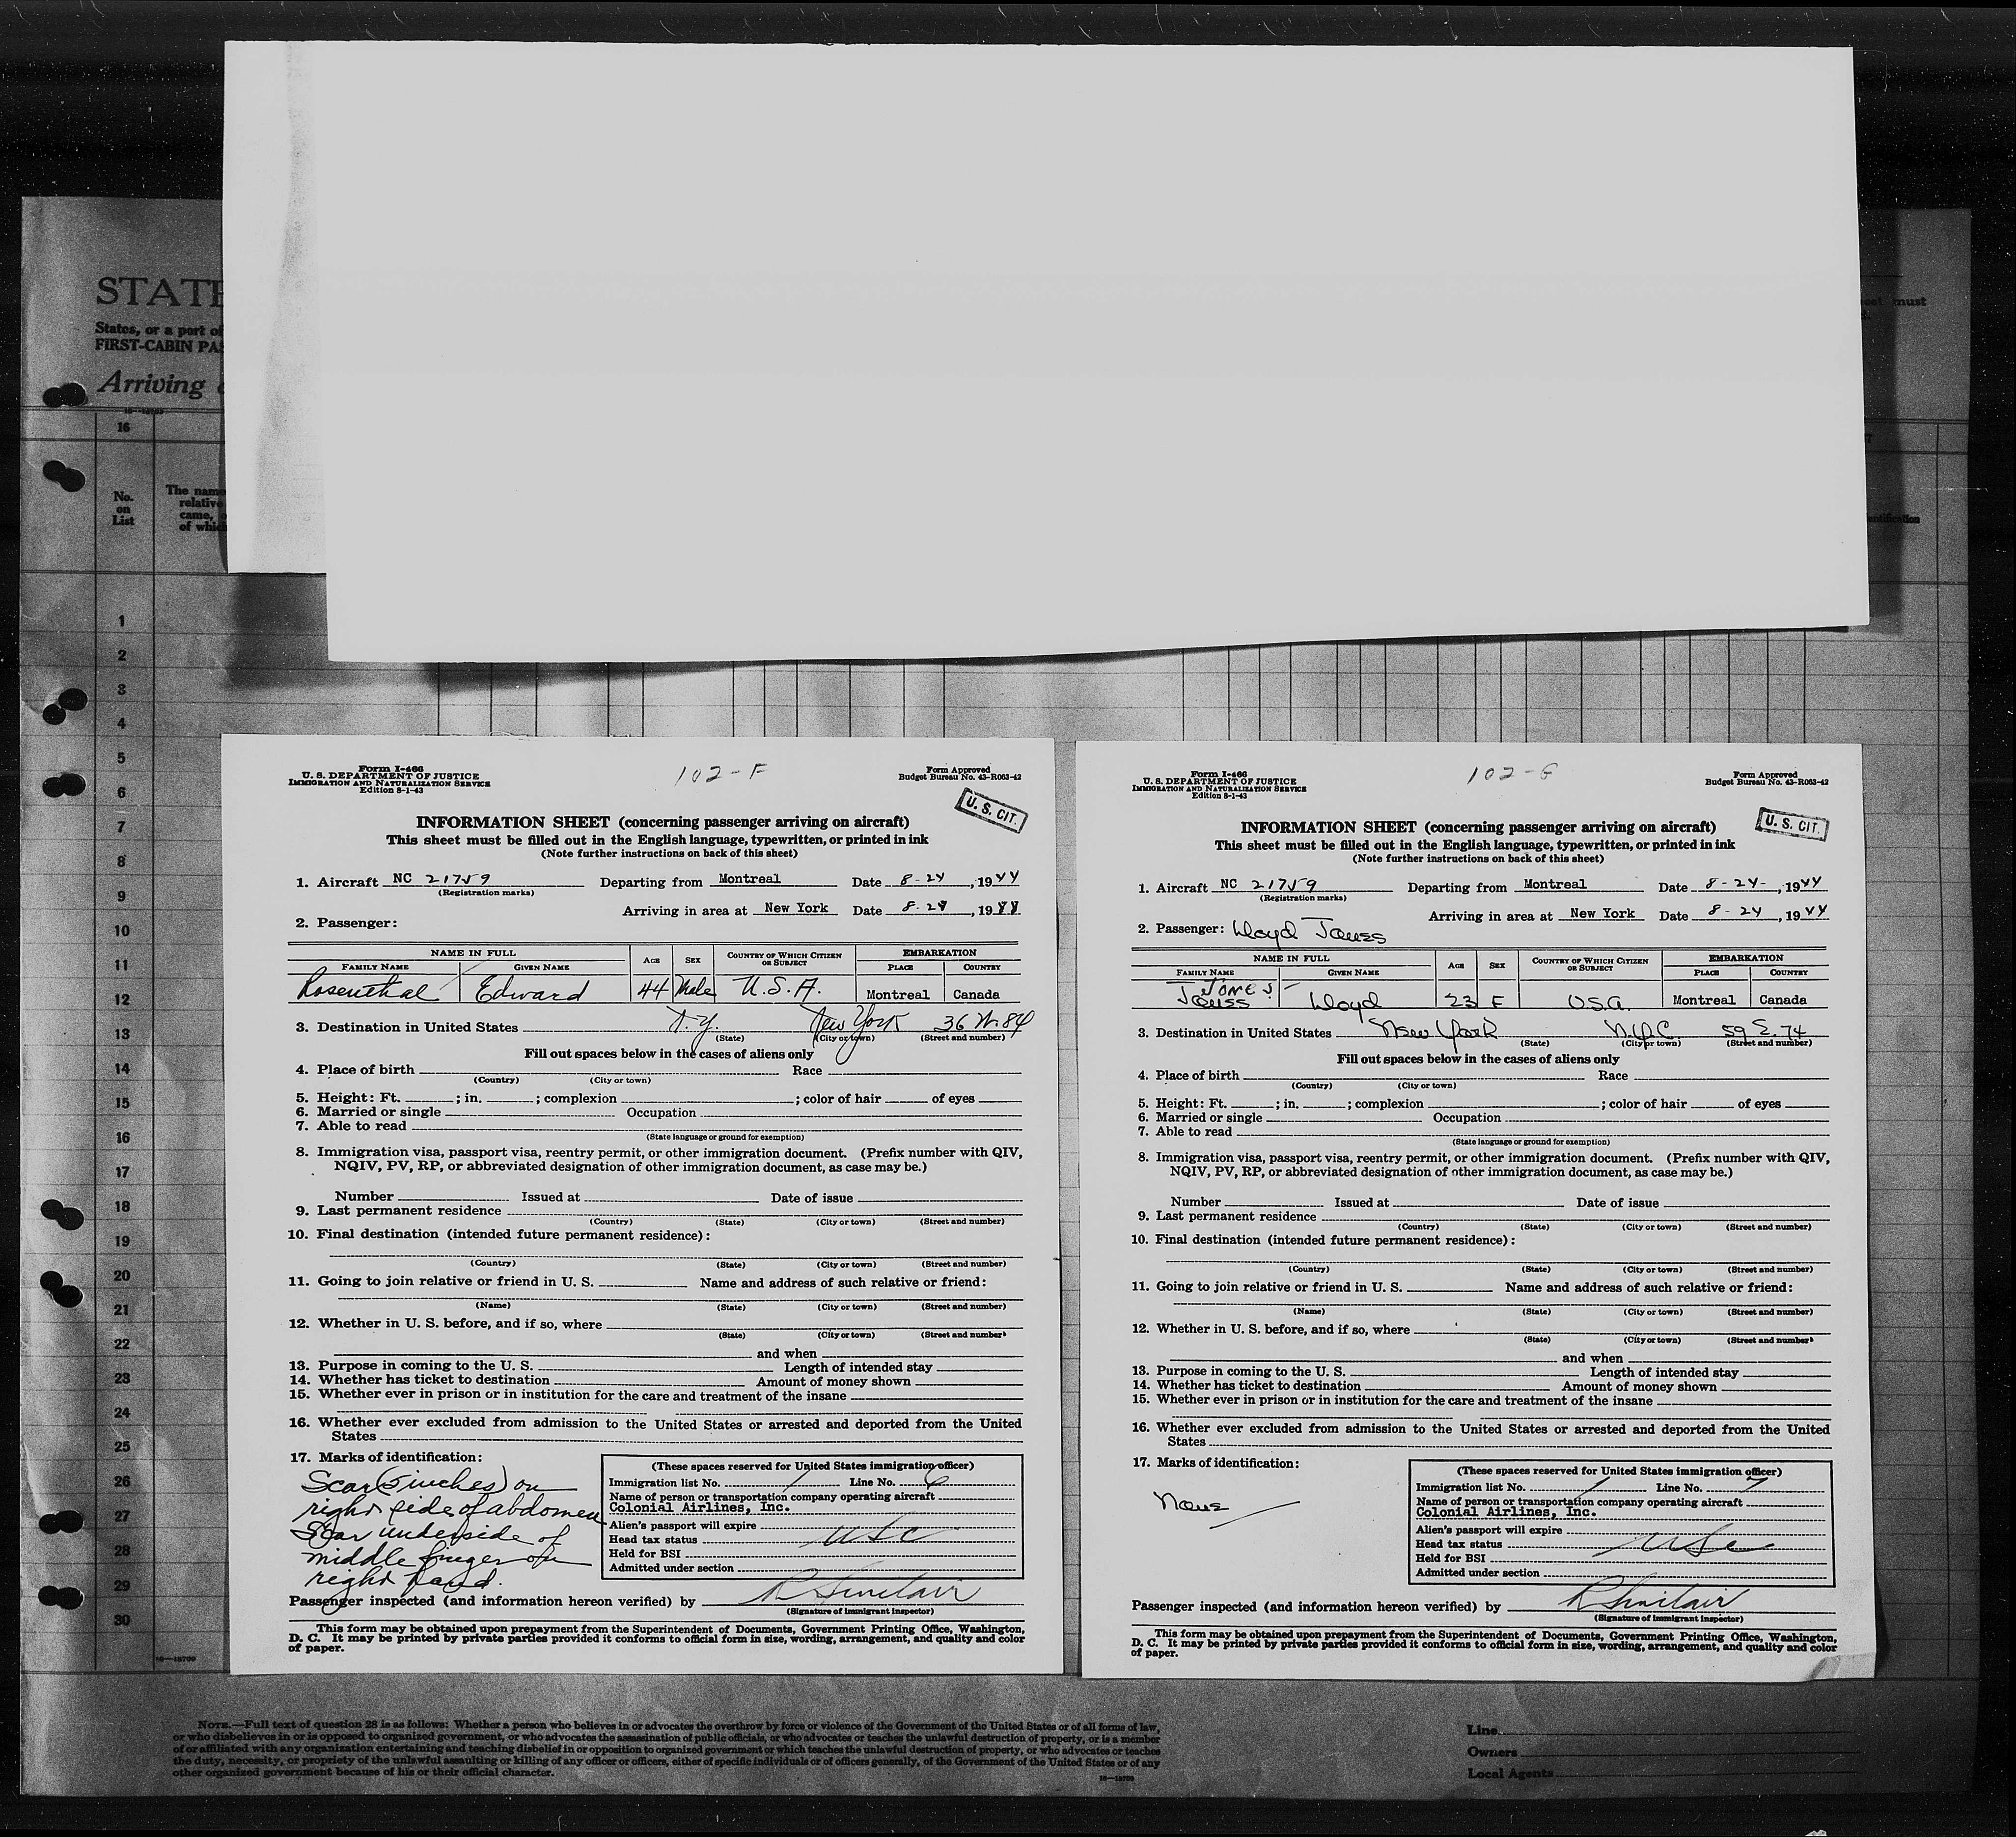 STATE
States, or a port of
FIRST-CABIN PAS
Arriving
16
No.
on
List
The name
relative
came,
of which
eet must
entification
1
2
3
4
5
6
7
8
9
10
11
12
13
14
15
16
17
18
19
20
21
22
23
24
25
26
27
28
29
30
16—18709
Form I-466
U. S. DEPARTMENT OF JUSTICE
IMMIGRATION AND NATURALIZATION SERVICE
Edition 8-1-43
102-F
Form Approved
Budget Bureau No. 43-R063-42
U. S. CIT.
INFORMATION SHEET (concerning passenger arriving on aircraft)
This sheet must be filled out in the English language, typewritten, or printed in ink
(Note further instructions on back of this sheet)
1. Aircraft NC 21759 Departing from Montreal Date 8-24, 1944
(Registration marks)
Arriving in area at New York Date 8-24, 1944
2. Passenger:
NAME IN FULL AGE SEX COUNTRY OF WHICH CITIZEN OR SUBJECT EMBARKATION
FAMILY NAME GIVEN NAME PLACE COUNTRY
Rosenthal Edward 44 Male U.S.A. Montreal Canada
3. Destination in United States N.Y. New York 36 W. 84
(State) (City or town) (Street and number)
Fill out spaces below in the cases of aliens only
4. Place of birth Race
(Country) (City or town)
5. Height: Ft. ; in. ; complexion ; color of hair of eyes
6. Married or single Occupation
7. Able to read
(State language or ground for exemption)
8. Immigration visa, passport visa, reentry permit, or other immigration document. (Prefix number with QIV,
NQIV, PV, RP, or abbreviated designation of other immigration document, as case may be.)
Number Issued at Date of issue
9. Last permanent residence
(Country) (State) (City or town) (Street and number)
10. Final destination (intended future permanent residence):
(Country) (State) (City or town) (Street and number)
11. Going to join relative or friend in U. S. Name and address of such relative or friend:
(Name) (State) (City or town) (Street and number)
12. Whether in U. S. before, and if so, where
(State) (City or town) (Street and number)
and when
13. Purpose in coming to the U. S. Length of intended stay
14. Whether has ticket to destination Amount of money shown
15. Whether ever in prison or in institution for the care and treatment of the insane
16. Whether ever excluded from admission to the United States or arrested and deported from the United
States
17. Marks of identification:
Scar (5 inches) on
right side of abdomen
Scar underside of
middle finger on
right hand.
(These spaces reserved for United States immigration officer)
Immigration list No. 1 Line No. 6
Name of person or transportation company operating aircraft
Colonial Airlines, Inc.
Alien's passport will expire
Head tax status USC
Held for BSI
Admitted under section
Passenger inspected (and information hereon verified) by R Sinclair
(Signature of immigrant inspector)
This form may be obtained upon prepayment from the Superintendent of Documents, Government Printing Office, Washington,
D. C. It may be printed by private parties provided it conforms to official form in size, wording, arrangement, and quality and color
of paper.
Form I-466
U. S. DEPARTMENT OF JUSTICE
IMMIGRATION AND NATURALIZATION SERVICE
Edition 8-1-43
102-G
Form Approved
Budget Bureau No. 43-R063-42
U. S. CIT.
INFORMATION SHEET (concerning passenger arriving on aircraft)
This sheet must be filled out in the English language, typewritten, or printed in ink
(Note further instructions on back of this sheet)
1. Aircraft NC 21759 Departing from Montreal Date 8-24-, 1944
(Registration marks)
Arriving in area at New York Date 8-24, 1944
2. Passenger: Lloyd Jones
NAME IN FULL AGE SEX COUNTRY OF WHICH CITIZEN OR SUBJECT EMBARKATION
FAMILY NAME GIVEN NAME PLACE COUNTRY
JONES -
Jones Lloyd 23 F USA. Montreal Canada
3. Destination in United States New York N.Y.C. 59 E. 74
(State) (City or town) (Street and number)
Fill out spaces below in the cases of aliens only
4. Place of birth Race
(Country) (City or town)
5. Height: Ft. ; in. ; complexion ; color of hair of eyes
6. Married or single Occupation
7. Able to read
(State language or ground for exemption)
8. Immigration visa, passport visa, reentry permit, or other immigration document. (Prefix number with QIV,
NQIV, PV, RP, or abbreviated designation of other immigration document, as case may be.)
Number Issued at Date of issue
9. Last permanent residence
(Country) (State) (City or town) (Street and number)
10. Final destination (intended future permanent residence):
(Country) (State) (City or town) (Street and number)
11. Going to join relative or friend in U. S. Name and address of such relative or friend:
(Name) (State) (City or town) (Street and number)
12. Whether in U. S. before, and if so, where
(State) (City or town) (Street and number)
and when
13. Purpose in coming to the U. S. Length of intended stay
14. Whether has ticket to destination Amount of money shown
15. Whether ever in prison or in institution for the care and treatment of the insane
16. Whether ever excluded from admission to the United States or arrested and deported from the United
States
17. Marks of identification:
None
(These spaces reserved for United States immigration officer)
Immigration list No. 1 Line No. 7
Name of person or transportation company operating aircraft
Colonial Airlines, Inc.
Alien's passport will expire
Head tax status USC
Held for BSI
Admitted under section
Passenger inspected (and information hereon verified) by R Sinclair
(Signature of immigrant inspector)
This form may be obtained upon prepayment from the Superintendent of Documents, Government Printing Office, Washington,
D. C. It may be printed by private parties provided it conforms to official form in size, wording, arrangement, and quality and color
of paper.
NOTE.—Full text of question 28 is as follows: Whether a person who believes in or advocates the overthrow by force or violence of the Government of the United States or of all forms of law,
or who disbelieves in or is opposed to organized government, or who advocates the assassination of public officials, or who advocates or teaches the unlawful destruction of property, or is a member
of or affiliated with any organization entertaining and teaching disbelief in or opposition to organized government or which teaches the unlawful destruction of property, or who advocates or teaches
the duty, necessity, or propriety of the unlawful assaulting or killing of any officer or officers, either of specific individuals or of officers generally, of the Government of the United States or of any
other organized government because of his or their official character.
16—18709
Line
Owners
Local Agents